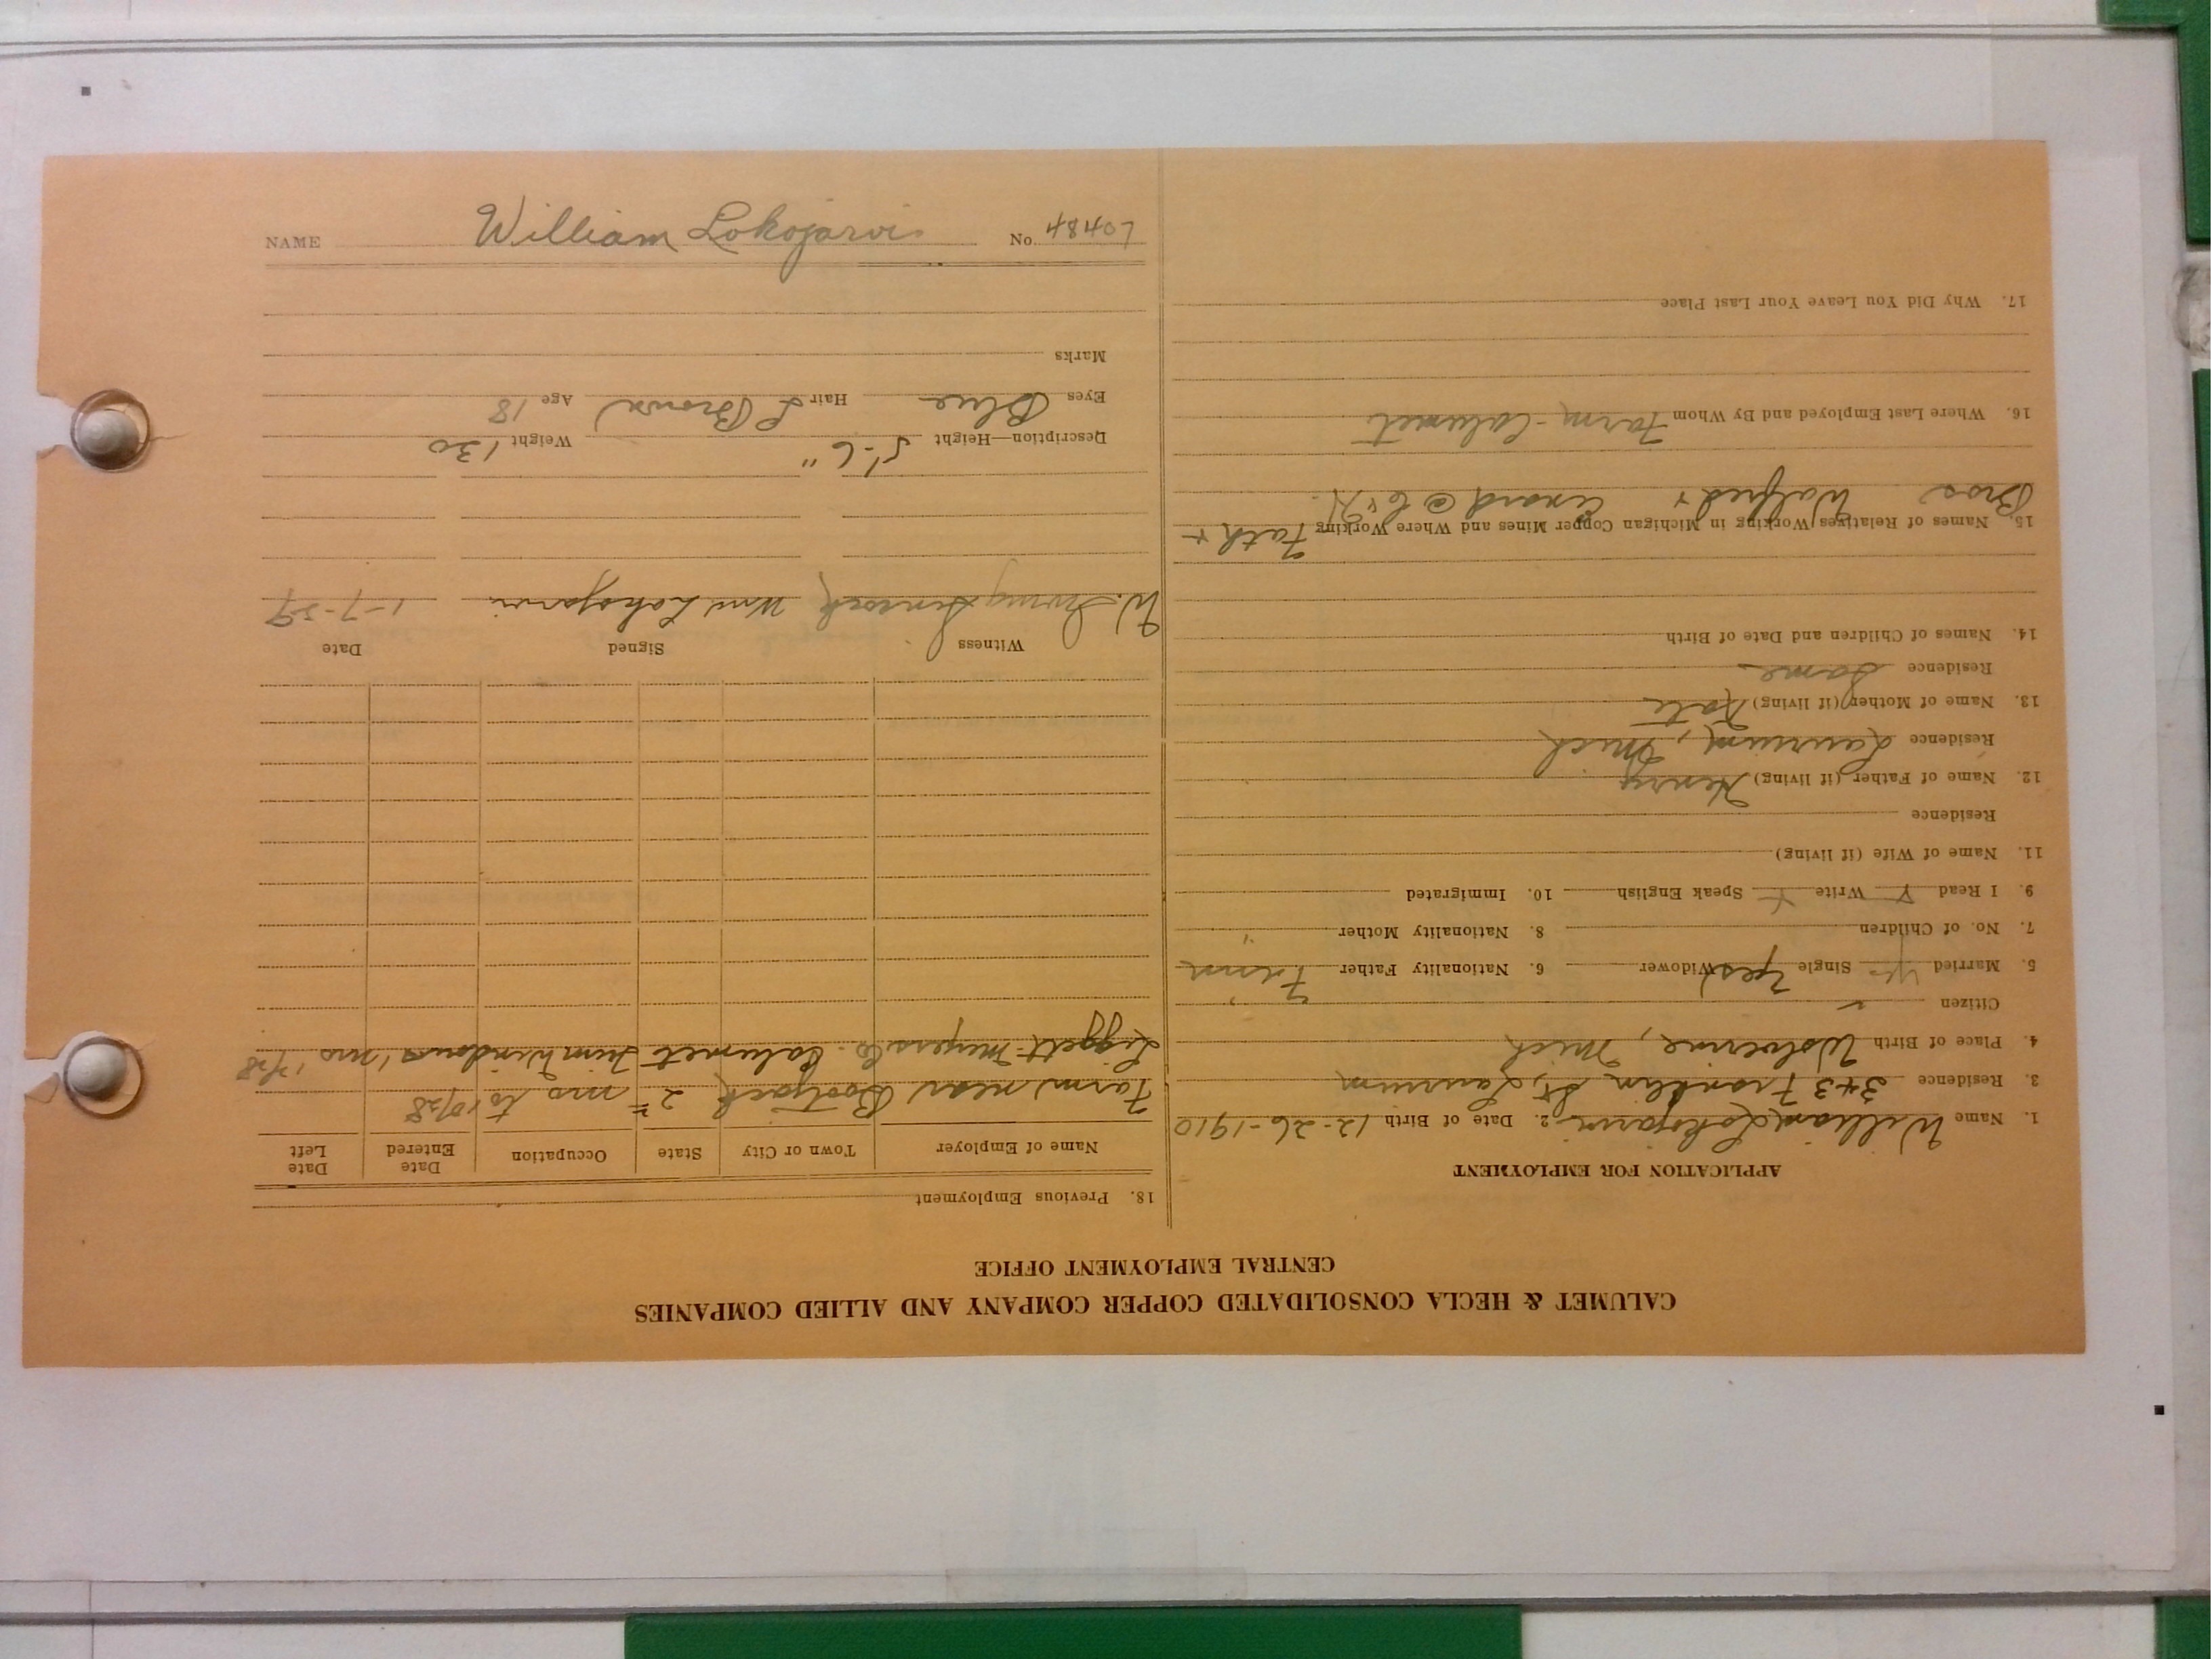 CALUMET & HECLA CONSOLIDATED COPPER COMPANY AND ALLIED COMPANIES
CENTRAL EMPLOYMENT OFFICE
APPLICATION FOR EMPLOYMENT
1. Name William Lokojarvi 2. Date of Birth 12-26-1910
3. Residence 343 Franklin St, Laurium
4. Place of Birth Wolverine, Mich
Citizen
5. Married Single Yes Widower 6. Nationality Father Finn
7. No. of Children 8. Nationality Mother "
9. I Read Y Write Y Speak English 10. Immigrated
11. Name of Wife (if living)
Residence
12. Name of Father (if living) Henry
Residence Laurium, Mich
13. Name of Mother (if living) Kate
Residence Same
14. Names of Children and Date of Birth
15. Names of Relatives Working in Michigan Copper Mines and Where Working Fath +
Bros Walfred + @ C & H.
16. Where Last Employed and By and Whom Farm - Calumet
17. Why Did You Leave Your Last Place
18. Previous Employment
Name of Employer Town or City State Occupation Date Entered Date Left
Farm near Bootjack 2 mo to 10/28
Liggett-Meyers Co. Calumet Trim Windows 1 mo 12/28
Witness Signed Date
W. Wm Lokojarvi 1-7-29
Description—Height 5'-6" Weight 130
Eyes Blue Hair L Brown Age 18
Marks
NAME William Lokojarvi No. 48407